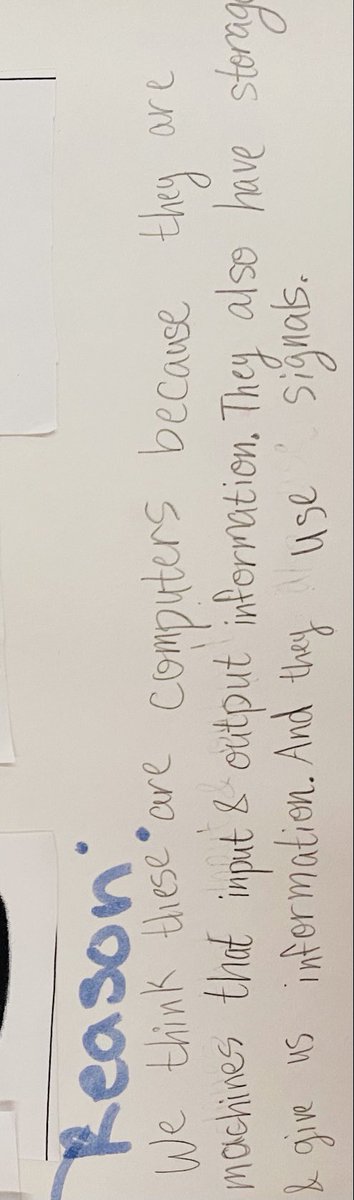 Reason:
We think these are computers because they are
machines that input & output information. They also have storage
& give us information. And they use signals.